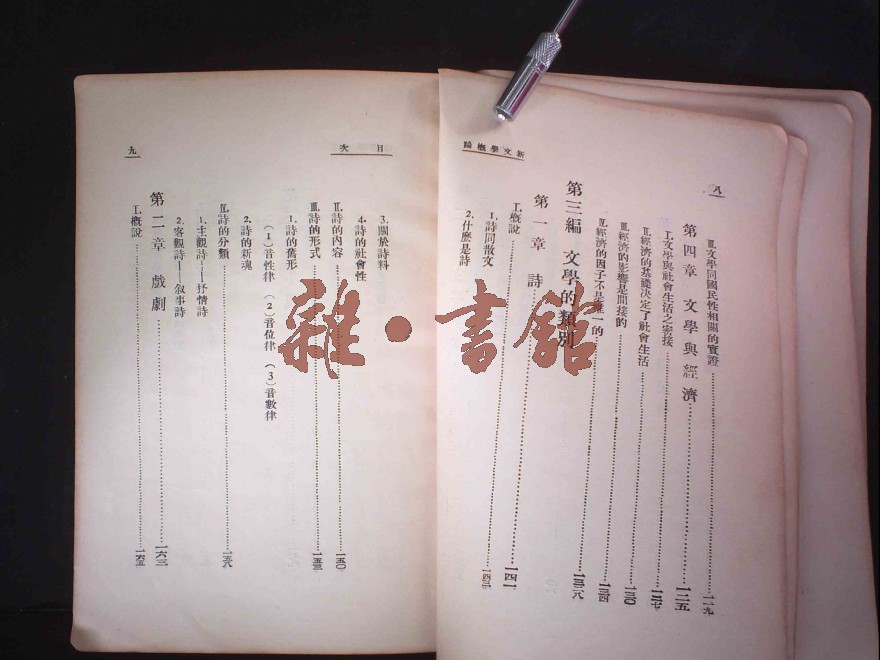 新文學概論
八
Ⅲ.文學同國民性相關的實證……一一九
第四章 文學與經濟……一二五
Ⅰ.文學與社會生活之密接……一二七
Ⅱ.經濟的基礎決定了社會生活……一三〇
Ⅲ.經濟的影響是間接的
Ⅳ.經濟的因子不是唯一的……一三四
第三編 文學的類別……一三八
第一章 詩
Ⅰ.概說……一四一
1.詩同散文……一四三
2.什麼是詩
目次
九
3.關於詩料
4.詩的社會性
Ⅱ.詩的內容……一五〇
Ⅲ.詩的形式……一五三
1.詩的舊形
(1)音性律 (2)音位律 (3)音數律
2.詩的新魂
Ⅳ.詩的分類……一五八
1.主觀詩——抒情詩
2.客觀詩——叙事詩
第二章 戲劇……一六三
Ⅰ.概說……一六三
雜·書館